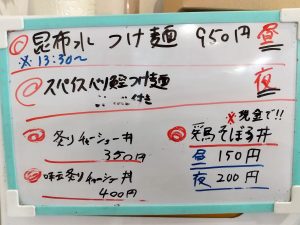 ◎昆布水 つけ麺 950円 昼
※13:30〜
◎スパイスベジ鮭つけ麺 夜
付き
◎炙りチャーシュー丼
350円
◎味玉炙りチャーシュー丼
400円
※現金で!!
◎そぼろ丼
昼 150円
夜 200円